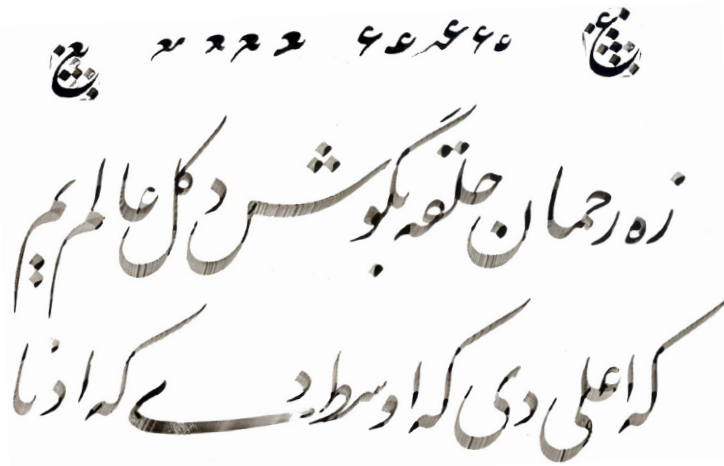 زه رحمان حلقه بگوش د کل عالم يم
که اعلی دی که اوسط دے که ادنا